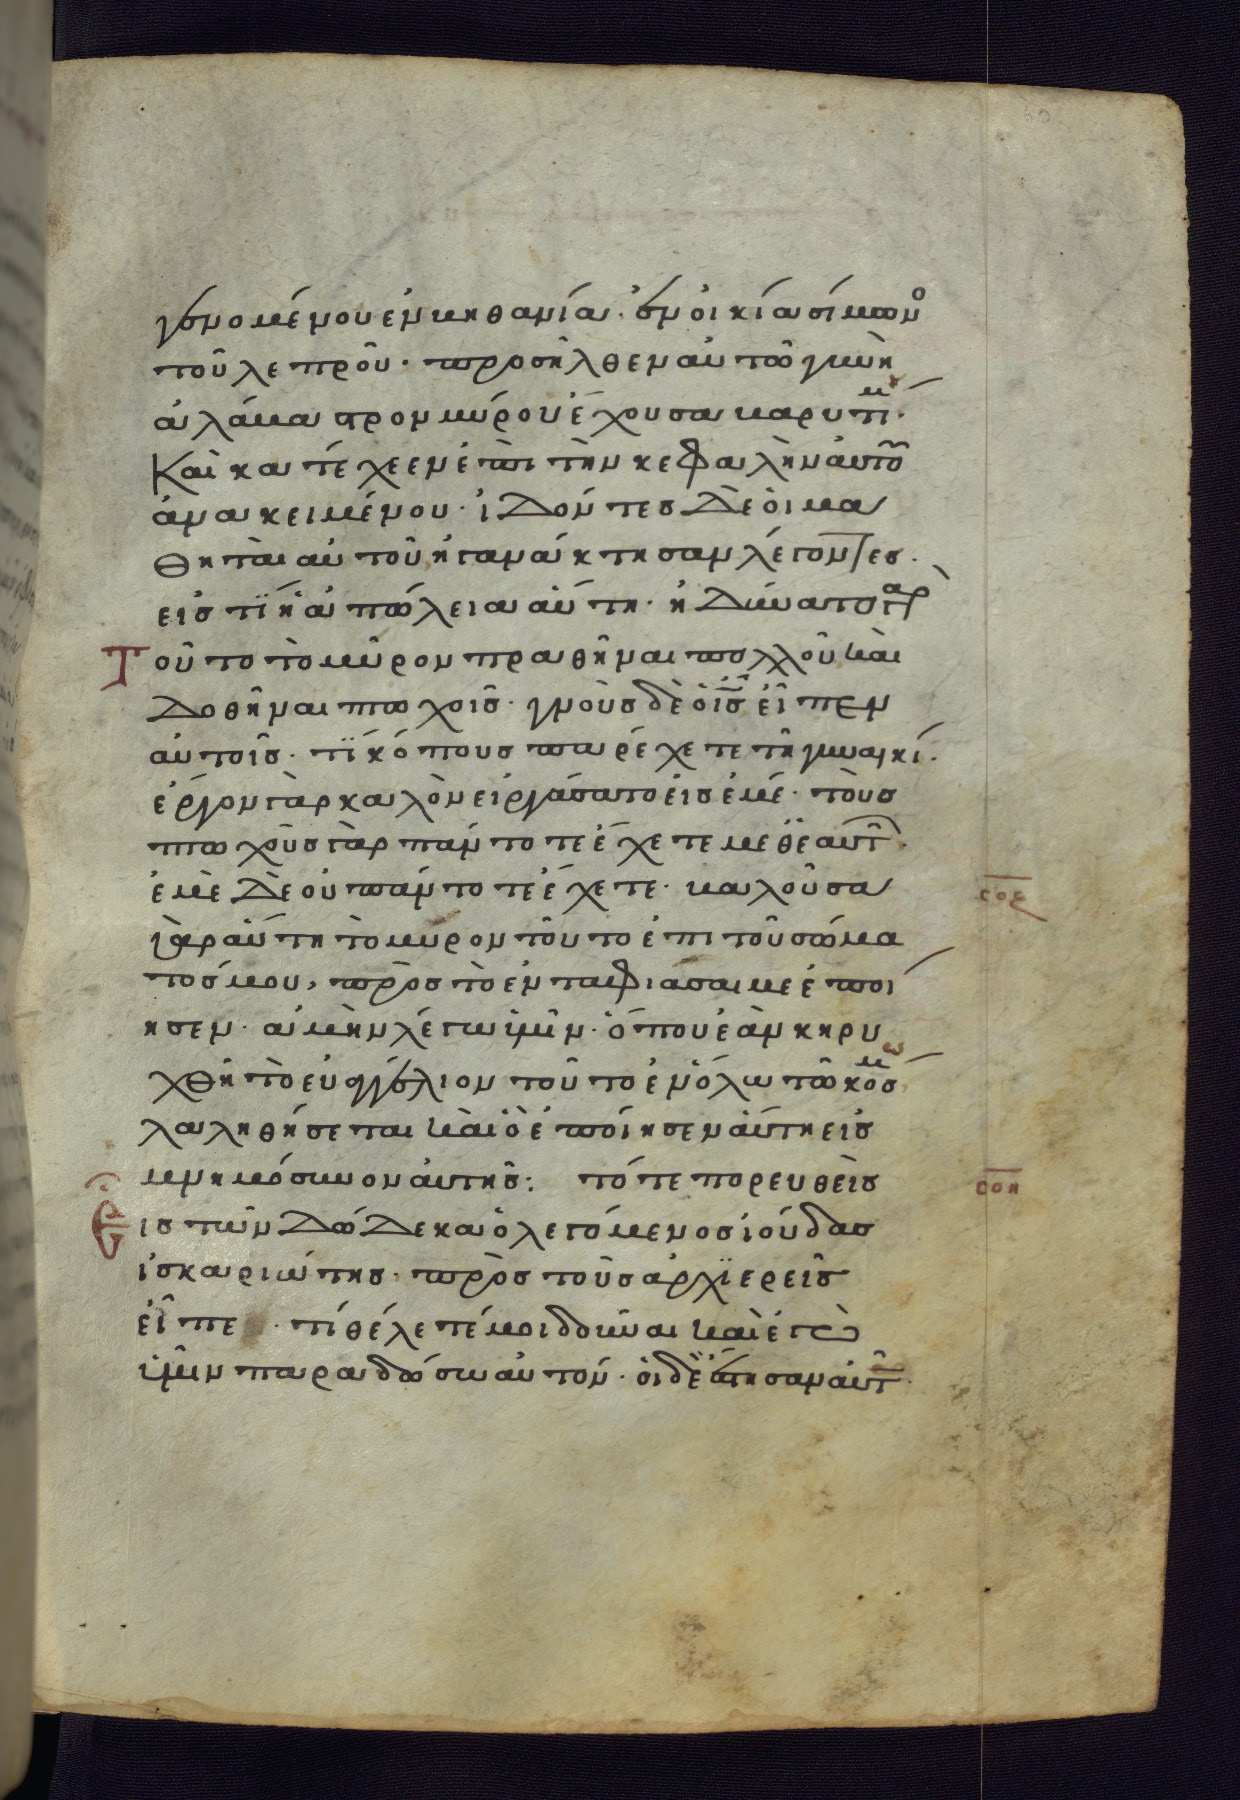 γενομένου ἐν βηθανία· ἐν οἰκία σίμωνο
τοῦ λεπροῦ· προσῆλθεν αὐτῶ γυνὴ
ἀλάβαστρον μύρου ἔχουσα βαρυτίμ·
Καὶ κατέχεεν ἐπι τὴν κεφαλὴν ἀυτοῦ
ἀνακειμένου· ἰδόντες δὲ ὁι μα
θηταὶ αὐτοῦ ἠγανάκτησαν λέγοντες·
εἰς τΐ ἡ ἀπώλεια ἁύτη· ἠδύνατο γὰρ
Τοῦτο τὸ μῦρον πραθῆναι πολλοῦ καὶ
δοθῆναι πτωχοῖς· γνοὺς δὲ ὁ ις̅ ἐῖπεν
αὐτοῖς· τΐ κόπους παρέχετε τῆ γυναικί·
ἐργον γὰρ καλὸν εἰργάσατο ἐις ἐμέ· τοὺς
πτωχοὺς γὰρ πάντοτε ἔχετε μεθ ἑαυτ·
ἐμὲ δὲ οὐ πάντοτε ἔχετε· βαλοῦσα
γὰρ ἁύτη τὸ μύρον τοῦτο ἐπι τοῦ σώμα
τοσ μου, πρὸς τὸ ἐνταφιάσαι με ἐποί
ησεν· ἀμὴν λέγω ὑμῖν· ὅπου ἐὰν κηρυ
χθῆ τὸ εὐαγγέλιον τοῦτο ἐν ὅλω τῶ κόσμω
λαληθήσεται καὶ ὃ ἐποίησεν ἁύτη εἰς
μνημόσυνον ἀυτῆς: τότε πορευθεὶς
Εἱς τῶν δώδεκα ὁ λεγόμενος ἰούδας
ἰσκαριώτης· πρὸς τοὺς ἀρχϊερεῖς
ἐῖπε · τί θέλετέ μοι δοῦναι καὶ ἐγὼ
ὑμῖν παραδώσω αὐτόν· ὁι δὲ ἔστησαν ἀυτ·
σοζ
σοη